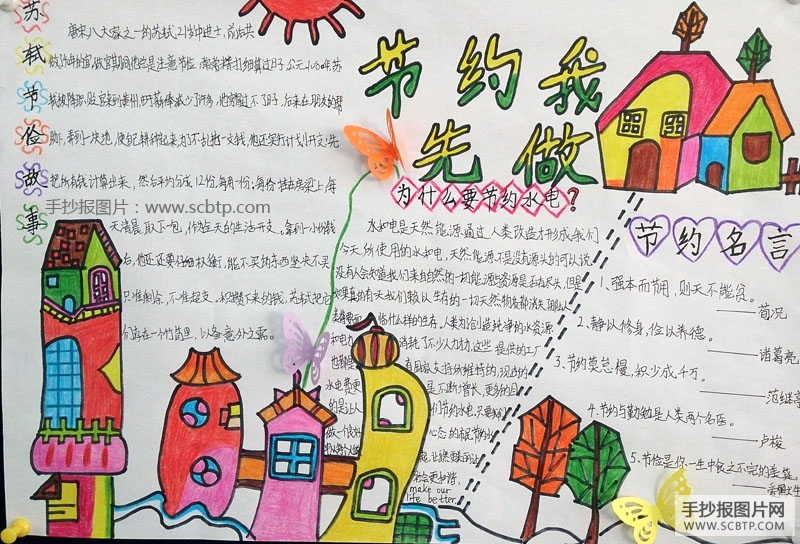 苏轼节俭故事
唐宋八大家之一的苏轼,21岁中进士,前后共
做过40年的官,做官期间他总是注意节俭,常常精打细算过日子。公元1080年,苏
轼被降职贬官来到黄州,由于薪俸减少了许多,他穷得过不了日子,后来在朋友的帮
助,弄到一块地,便自己耕种起来,为了不乱花一文钱,他还实行计划开支:先
把所有钱计算出来,然后平均分成12份,每月一份;每份 挂在房梁上,每
天清晨取下一包,作为全天的生活开支。拿到一小份钱
后,他还要仔细权衡,能不买的东西坚决不买,
只准剩余,不准超支。积攒下来的钱,苏轼把它
们存在一个竹筒里,以备意外之需。
手抄报图片:www.scbtp.com
节约我
先做
为什么要节约水电?
水和电是天然能源通过人类改造才形成,我们
今天所使用的水和电,天然能源不是没有源头的可以说
没有人会知道我们来自自然的一切能源资源是否有尽头,但是
如果真的有天我们赖以生存的一切天然物质都消失了,那么人
临什么样的生存,人类为了创造纯净的水资源
消耗了不少人力物力,这些 提供的工厂
有国家支持所维持的,现在的
水电费更 是不断增长,更多的目
的是让人 们节约水电,只要我们
make our
life better.
节约名言
1、强本而节用,则天不能贫。
——荀况
2、静以修身,俭以养德。
——诸葛亮
3、节约莫怠慢,积少成千万。
——范继亭
4、节约与勤勉是人类两个名医。
——卢梭
5、节俭是你一生中食之不完的美筵。
手抄报图片网
WWW.SCBTP.COM